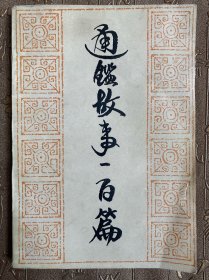 通鑑故事一百篇